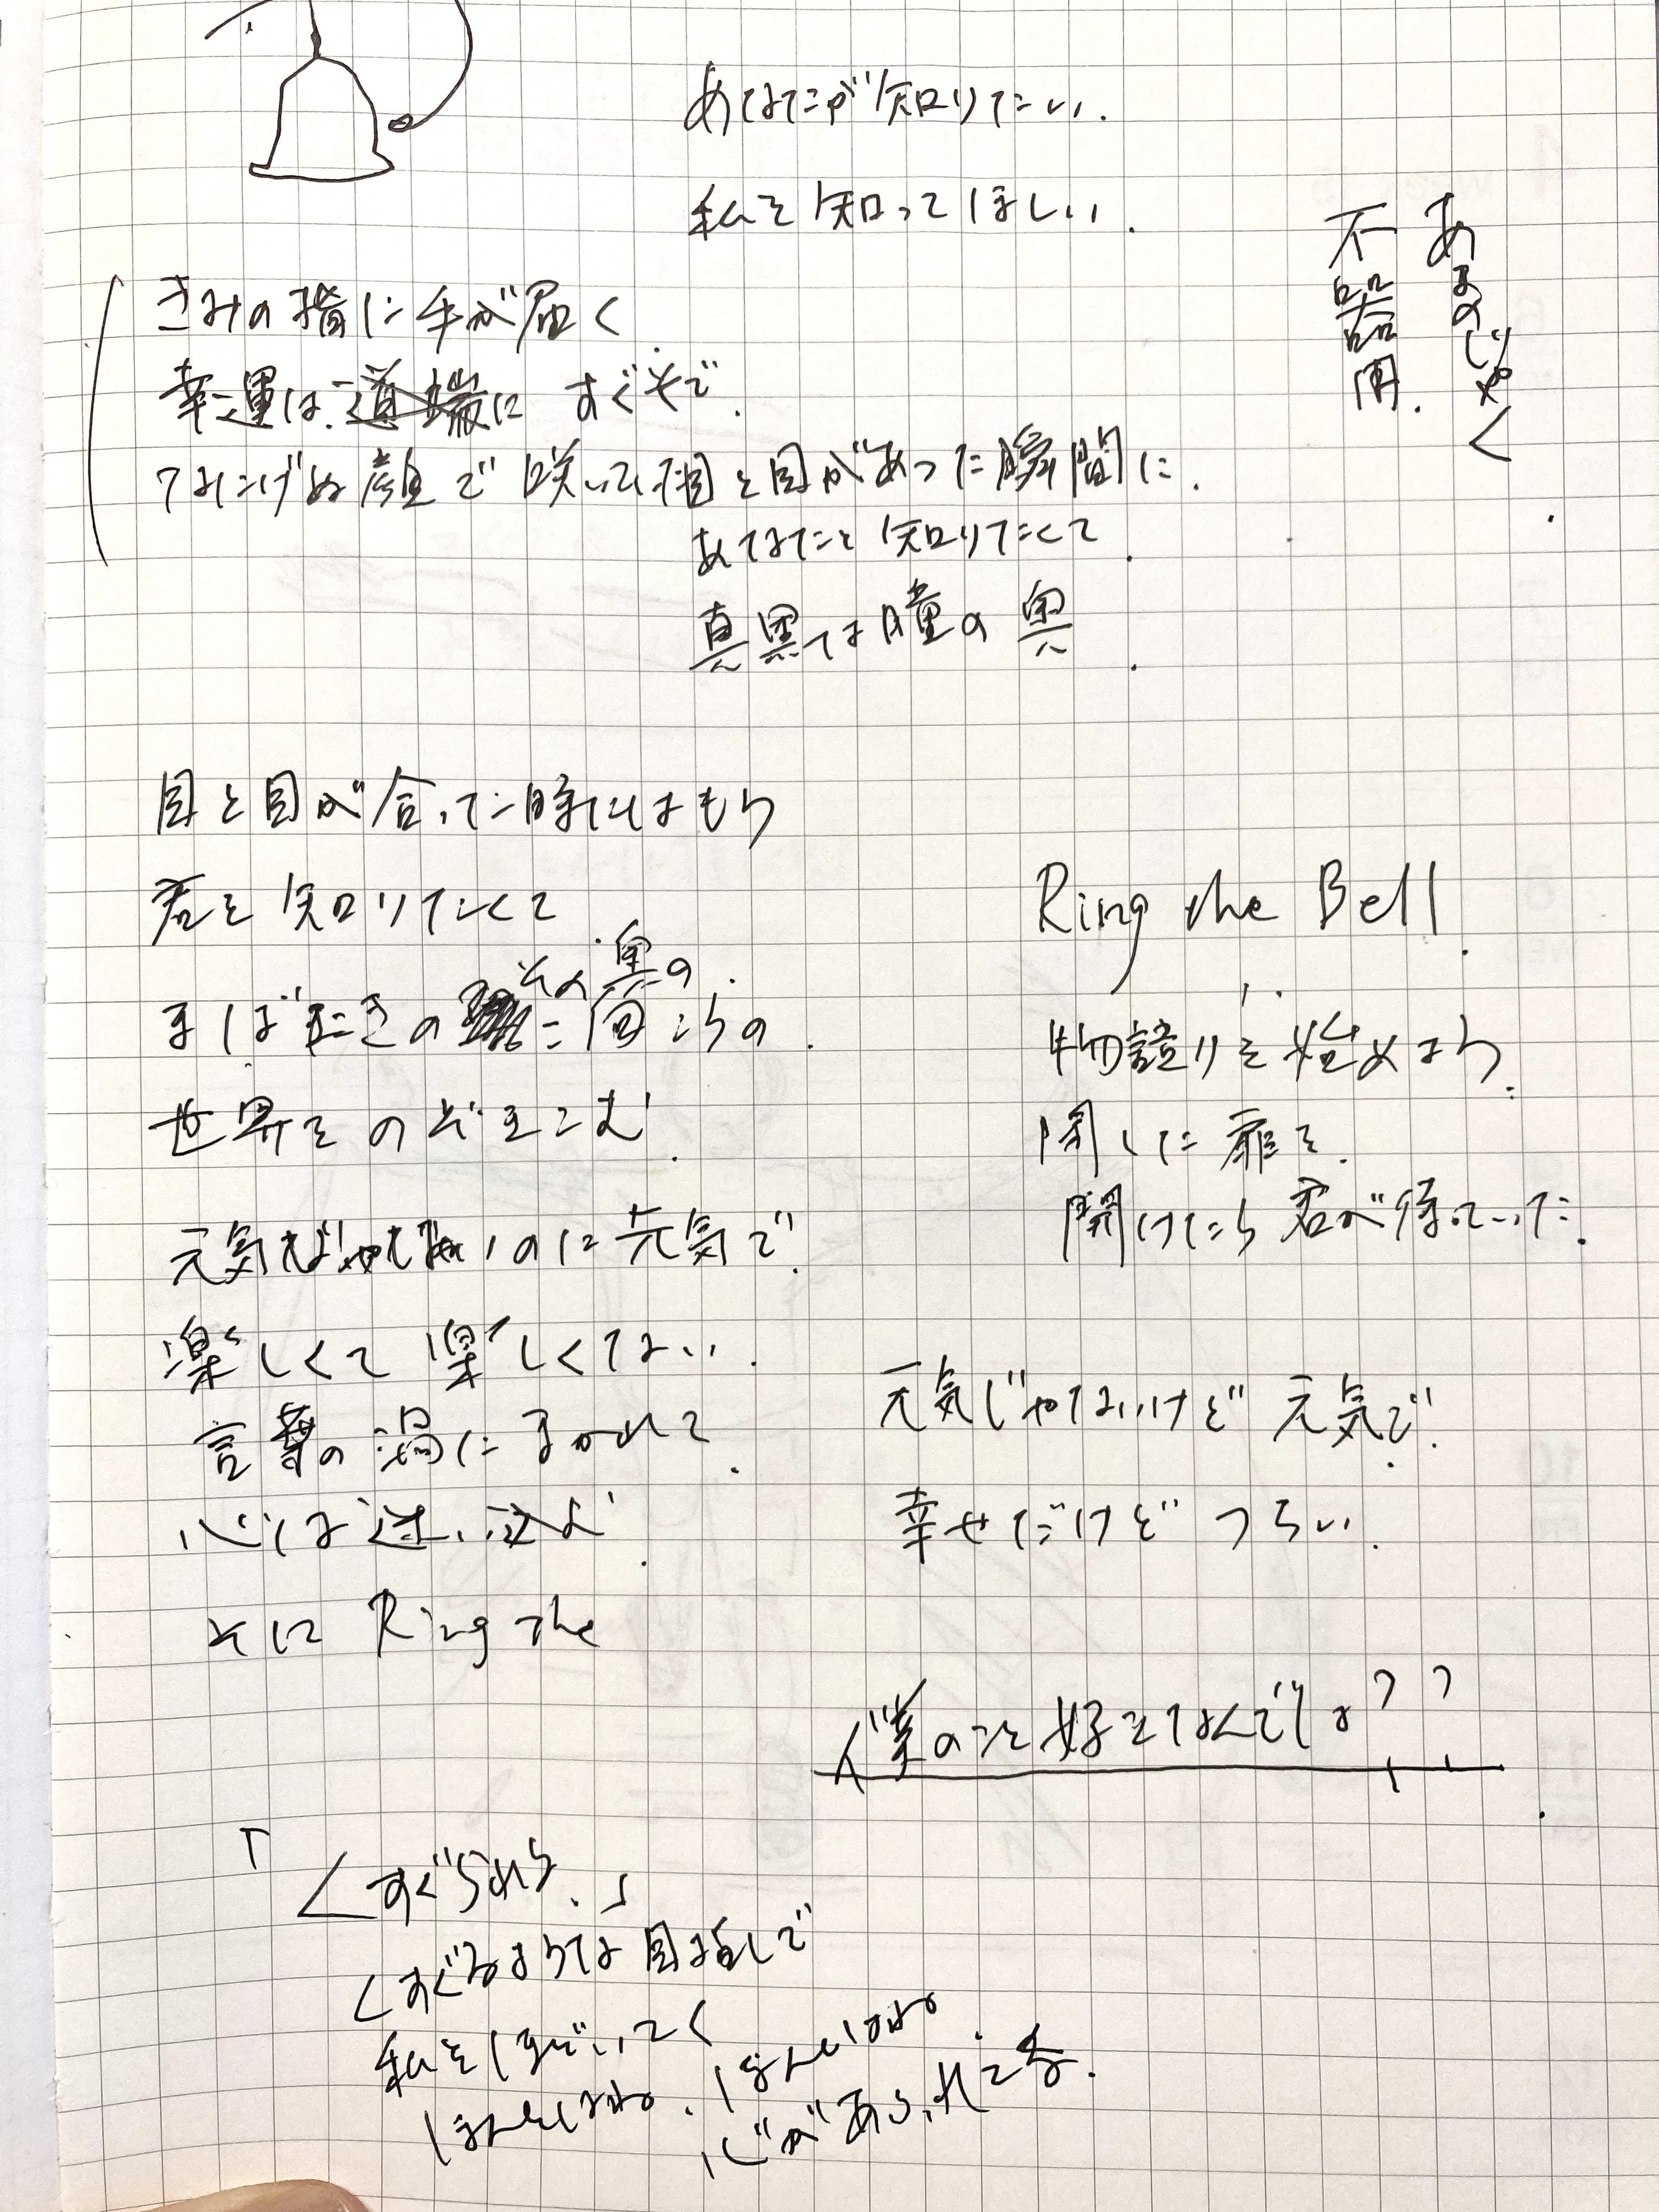 あなたが知りたい.
私を知ってほしい.
あまのじゃく
不器用.
きみの指に手が届く
幸運は道端に すぐそこで.
なにげぬ顔で咲いて 目と目があった瞬間に.
あなたを知りたくて
真黒な瞳の奥
目と目が合った時にはもう
君を知りたくて
その奥の.
まばたきの 向こうの.
世界をのぞきこむ.
Ring the Bell.
物語りを始めよう.
閉じた扉を.
開けたら君が待っていた.
元気じゃないのに元気で.
楽しくて楽しくない.
言葉の渦にまかれて.
心は迷い込む.
元気じゃないけど 元気で.
幸せだけど つらい.
Ring the
僕のこと好きなんでしょ??
「くすぐられる.」
くすぐるような目指しで
私をほどいてく
ほんとはね. ほんとはね.
心があふれてる.